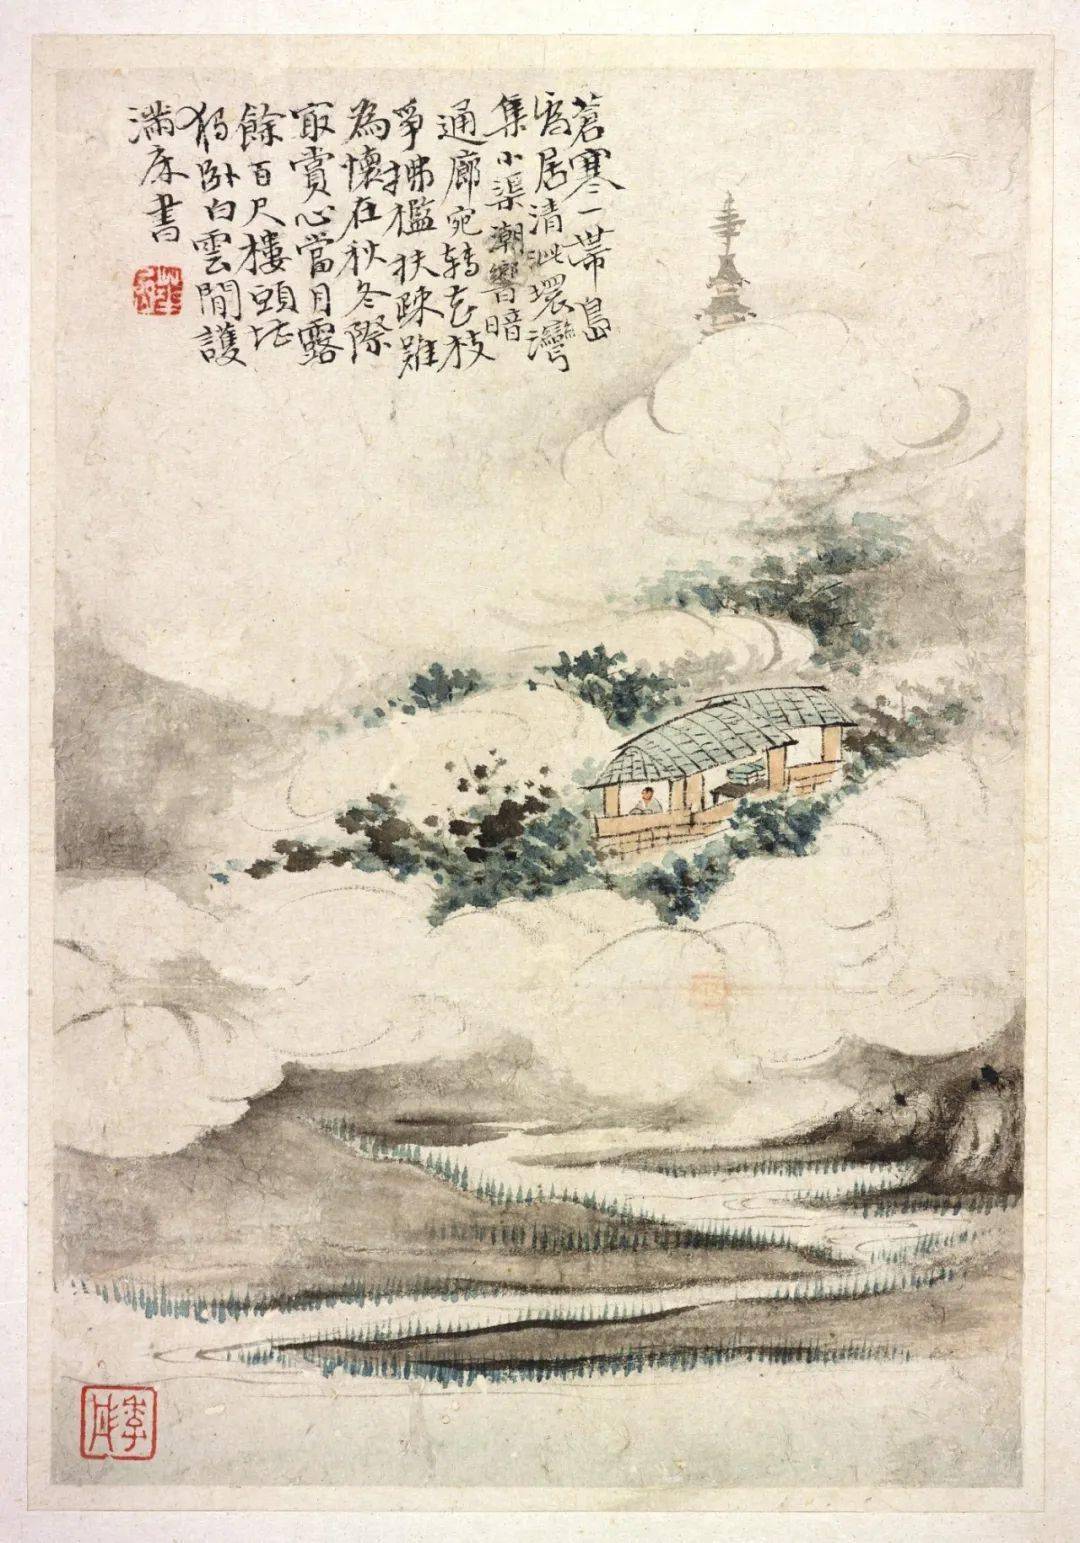 蒼寒一帶島
爲居清泚環灣
集小渠潮響暗
通廊宛轉花枝
爭拂檻扶踈雖
為懷在秋冬際
㝡賞心當月露
餘百尺樓頭堪
獨卧白雲閒護
滿床書